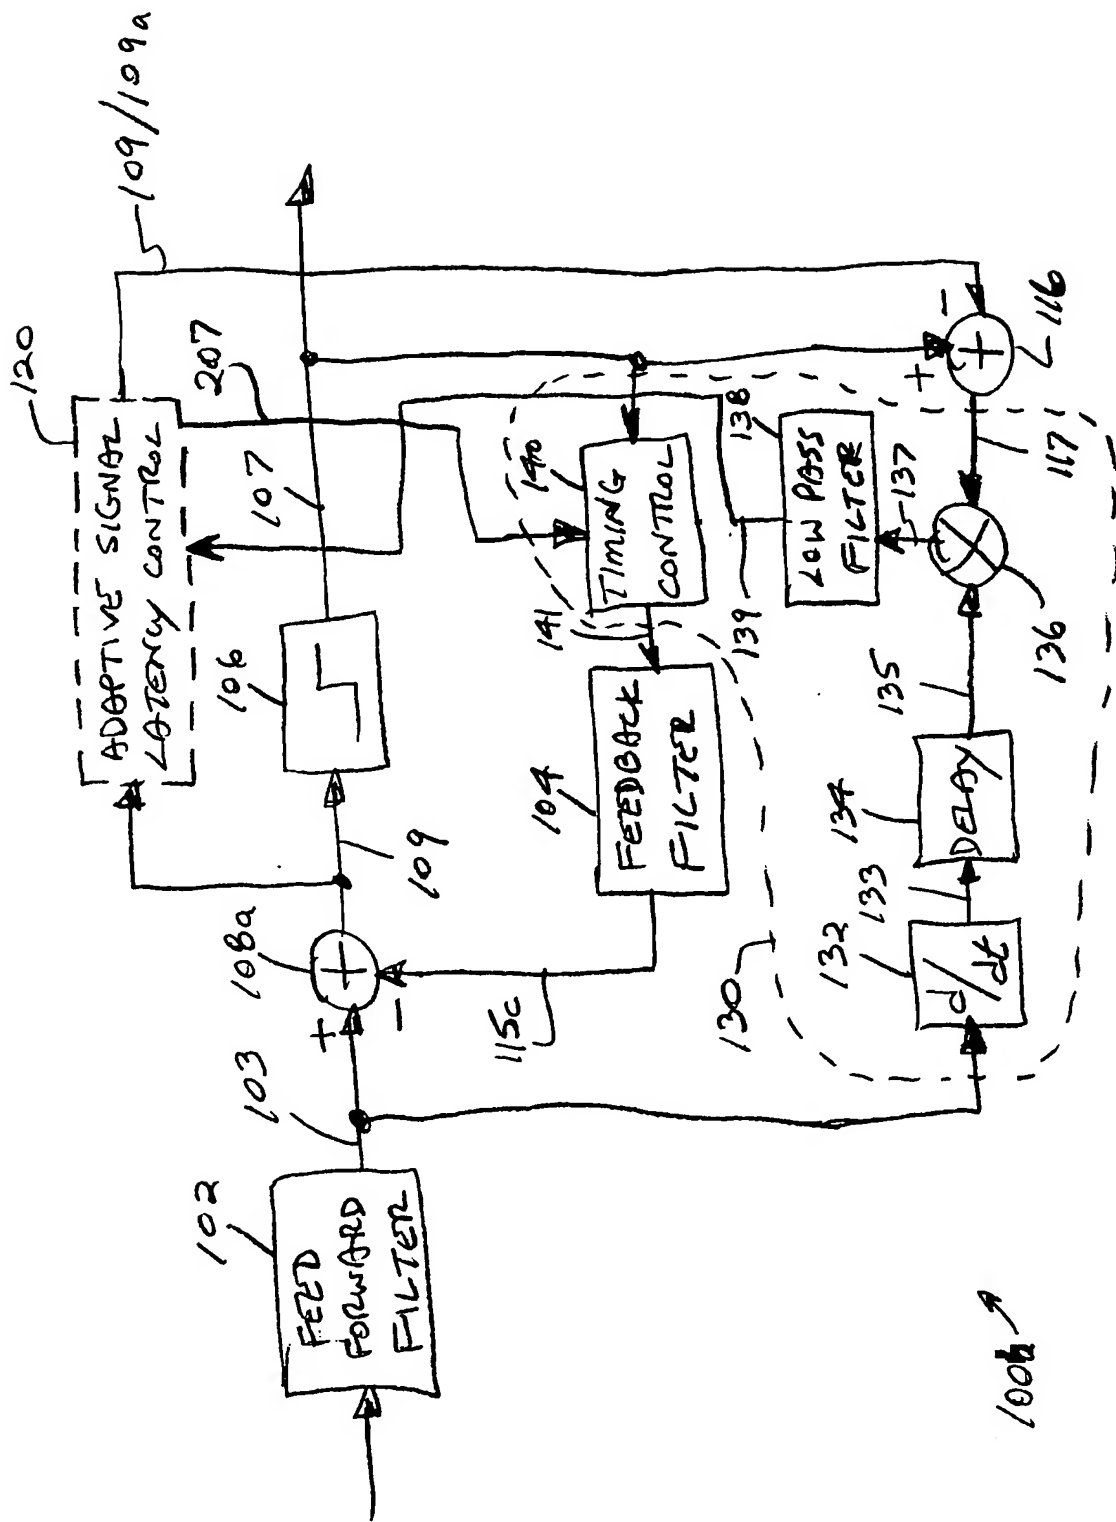 120
ADAPTIVE SIGNAL
LATENCY CONTROL
109/109a
207
107
106
109
108a
+
−
103
102
FEED
FORWARD
FILTER
115c
104
FEEDBACK
FILTER
141
140
TIMING
CONTROL
139
138
LOW PASS
FILTER
137
+
−
116
117
136
135
134
DELAY
133
132
d/dt
130